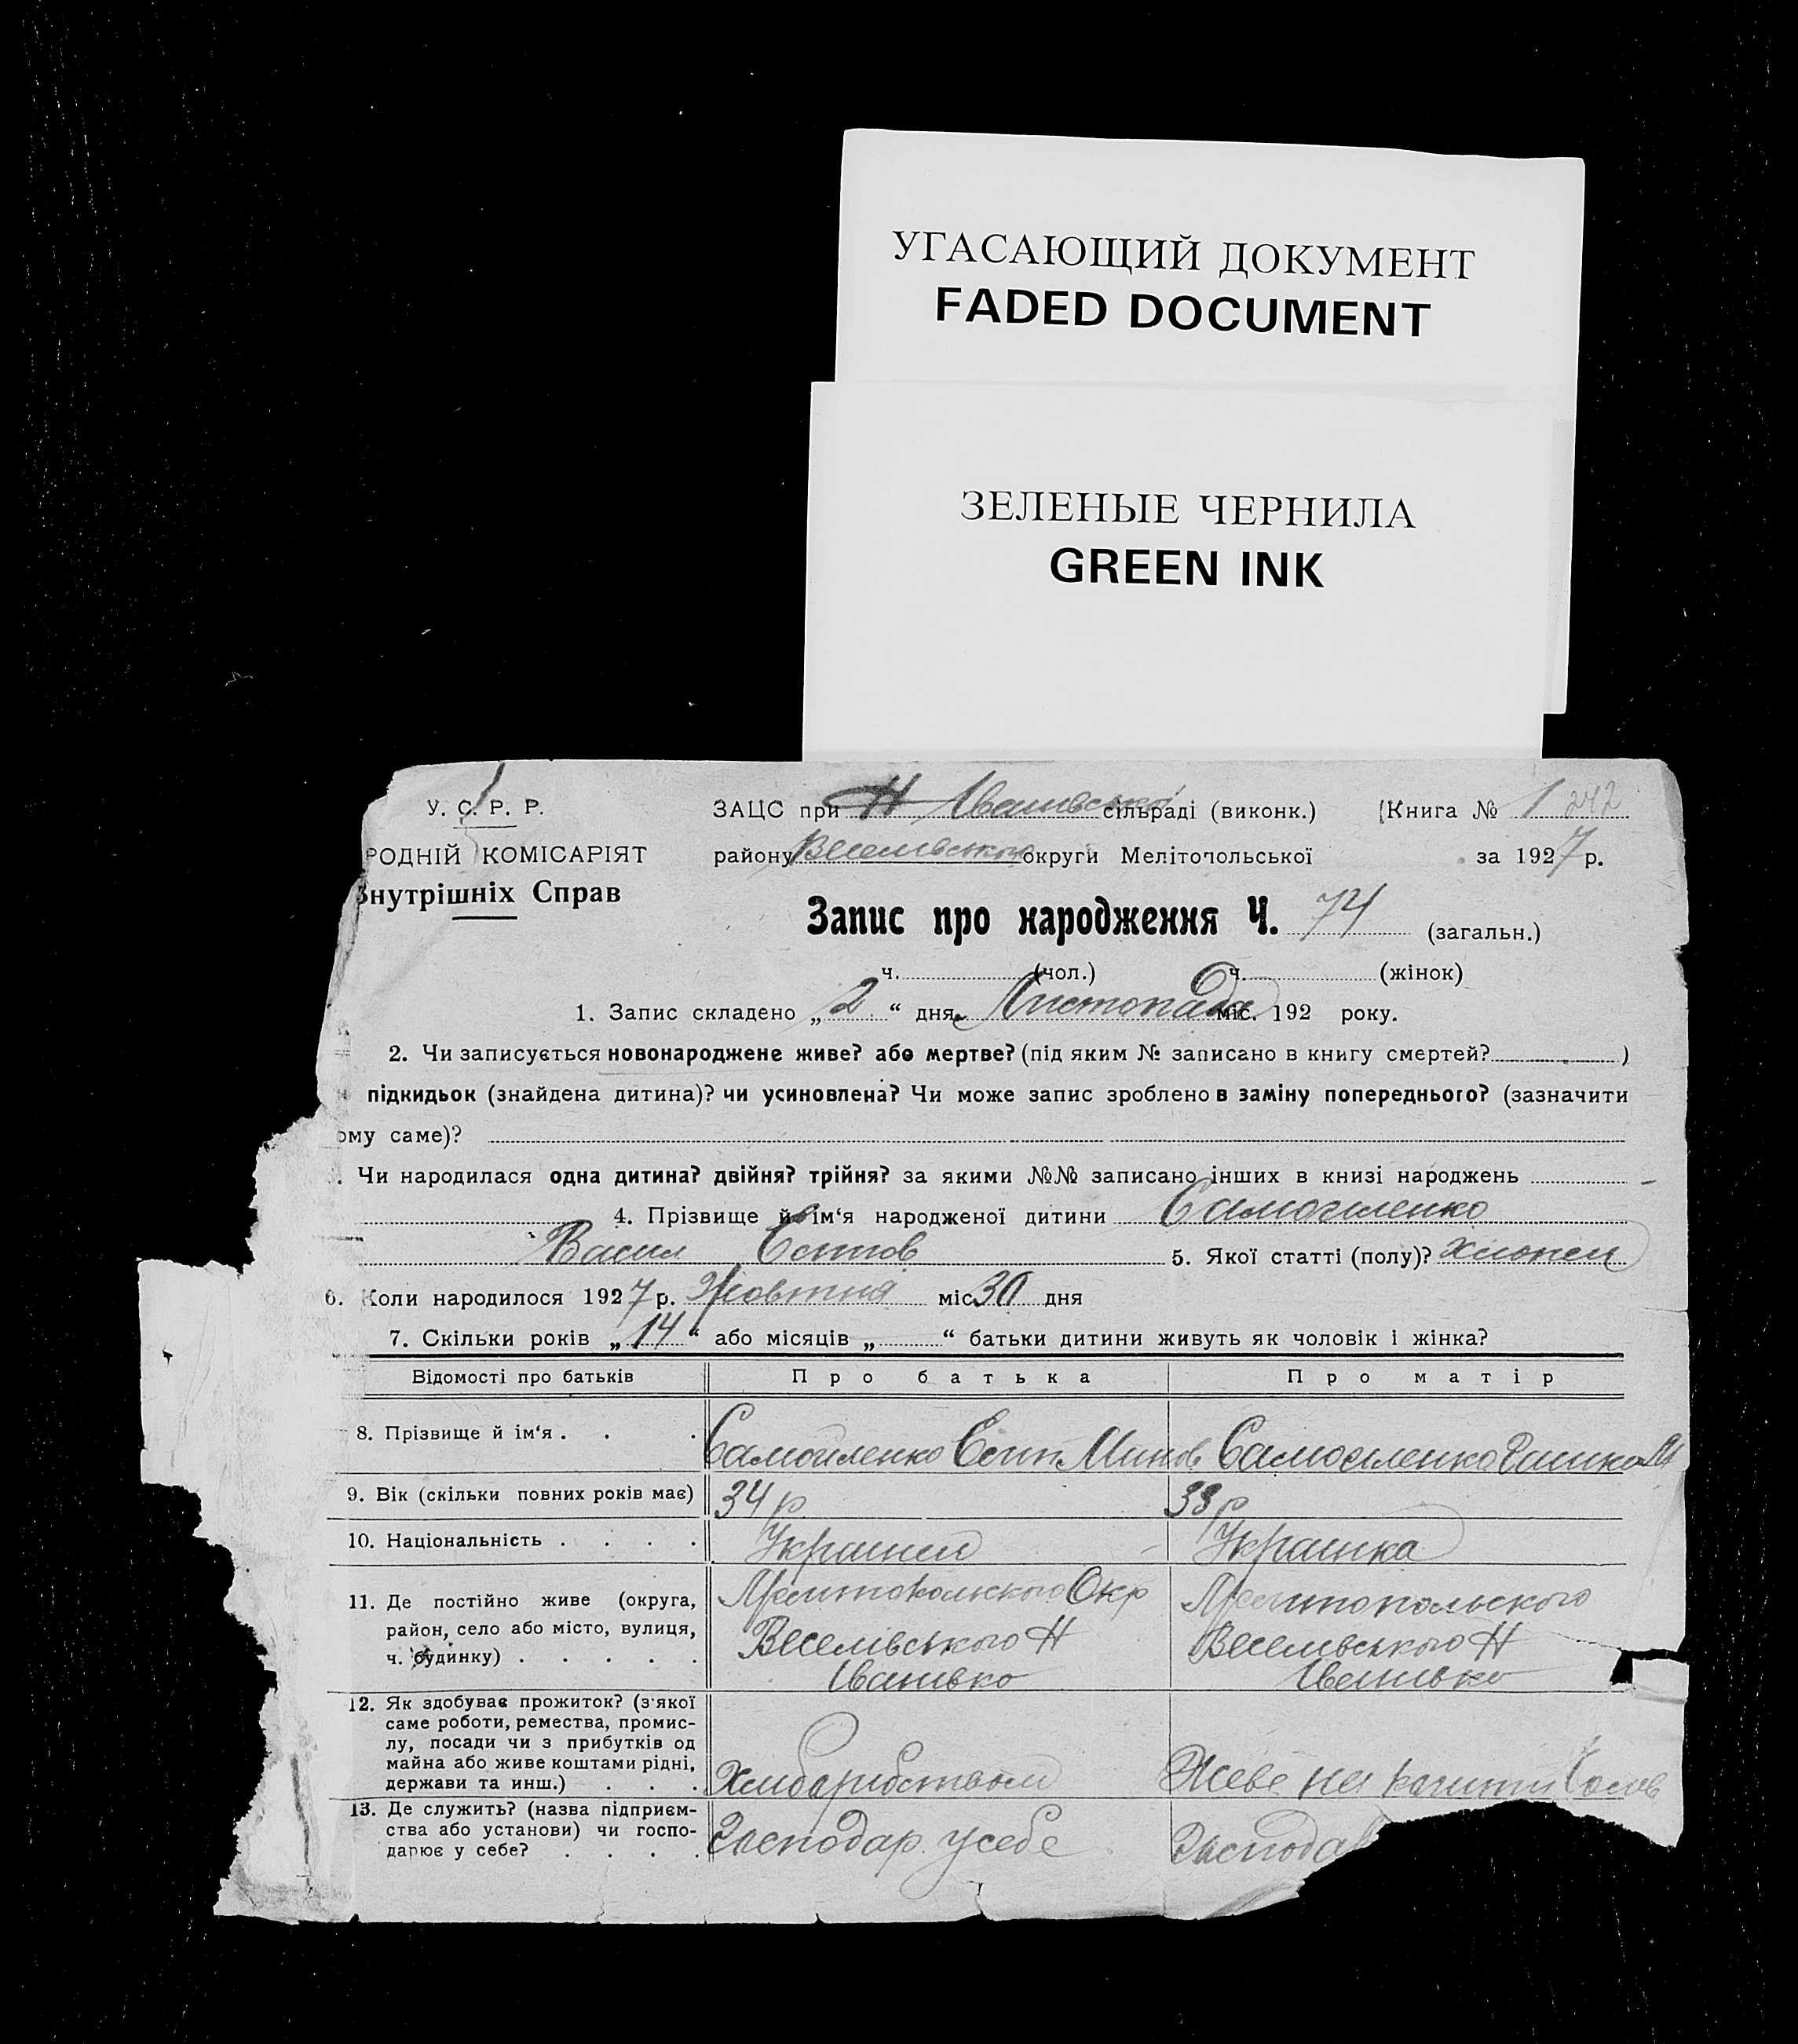 УГАСАЮЩИЙ ДОКУМЕНТ
FADED DOCUMENT
ЗЕЛЕНЫЕ ЧЕРНИЛА
GREEN INK
У. С. Р. Р. ЗАЦС при Н Іванівській сільраді (виконк.) Книга № 1 242
РОДНІЙ КОМІСАРІЯТ району Веселівського округи Мелітопольської за 1927 р.
Внутрішніх Справ
Запис про народження Ч. 74 (загальн.)
ч. (чол.) ч. (жінок)
1. Запис складено „2“ дня Листопада міс. 192 року.
2. Чи записується новонароджене живе? або мертве? (під яким № записано в книгу смертей? )
підкидьок (знайдена дитина)? чи усиновлена? Чи може запис зроблено в заміну попереднього? (зазначити
ому саме)?
. Чи народилася одна дитина? двійня? трійня? за якими №№ записано інших в книзі народжень
4. Прізвище й ім‘я народженої дитини Самойленко
Васил 5. Якої статті (полу)? хлопец
6. Коли народилося 1927 р. Жовтня міс 30 дня
7. Скільки років „14“ або місяців „ “ батьки дитини живуть як чоловік і жінка?
Відомості про батьків Про батька Про матір
8. Прізвище й ім‘я . . . Самойленко Самойленко
9. Вік (скільки повних років має) 34 р 33 р
10. Національність . . . . Украинец Украинка
11. Де постійно живе (округа, Мелітопольского Окр Мелитопольского
район, село або місто, вулиця, Веселівського Н Веселівського Н
ч. будинку) . . . . . Іванівко Іванівко
12. Як здобуває прожиток? (з якої
саме роботи, ремества, промис-
лу, посади чи з прибутків од
майна або живе коштами рідні,
держави та инш.) . . . Хлиборобством Живе на
13. Де служить? (назва підприєм-
ства або установи) чи госпо- Господар у себе Господа
дарює у себе? . . . .